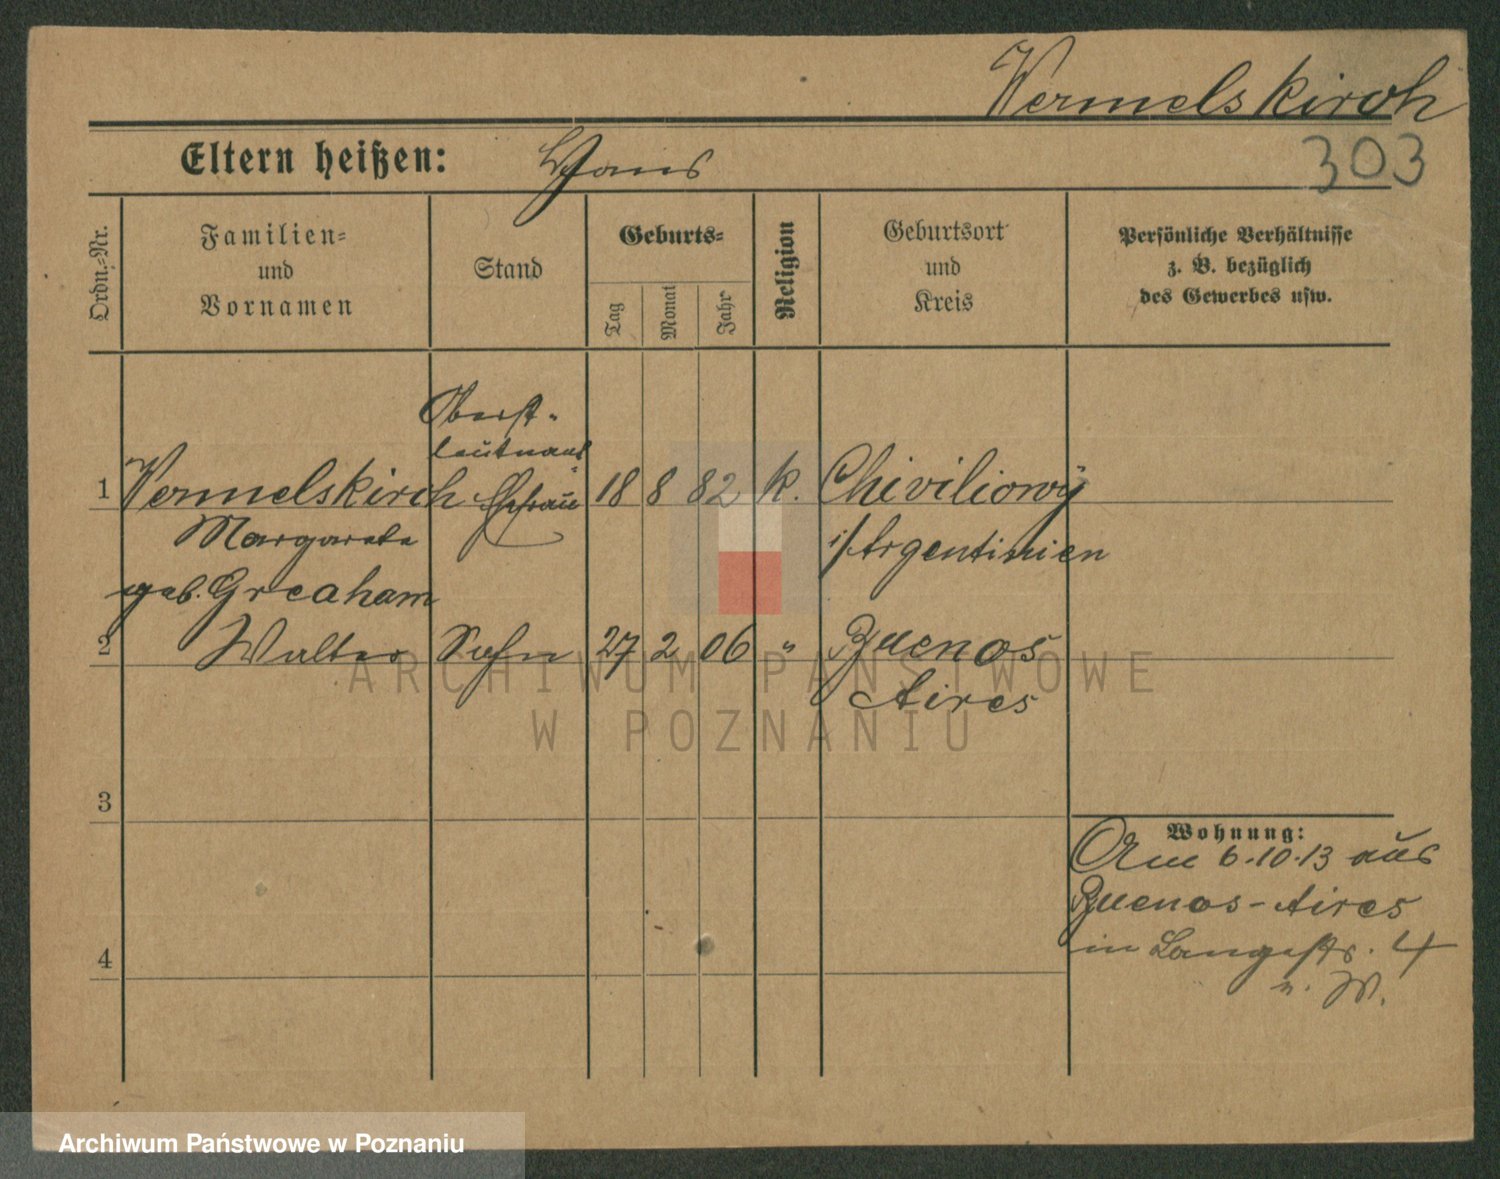 Wermelskirch
Eltern heißen: Hans
303
Ordn.-Nr.
Familien-
und
Vornamen
Stand
Geburts-
Tag
Monat
Jahr
Religion
Geburtsort
und
Kreis
Persönliche Verhältnisse
z. B. bezüglich
des Gewerbes usw.
Oberst-
leutnant
1 Wermelskirch Ehefrau 18 8 82 k. Chiviliowÿ
Margarete i/Argentinien
geb. Greaham
2 Walter Sohn 27 2 06 " Buenos
Aires
3
Wohnung:
Am 6.10.13 aus
Buenos-Aires
4 in Langestr. 4
n. W.
ARCHIWUM PAŃSTWOWE
W POZNANIU
Archiwum Państwowe w Poznaniu